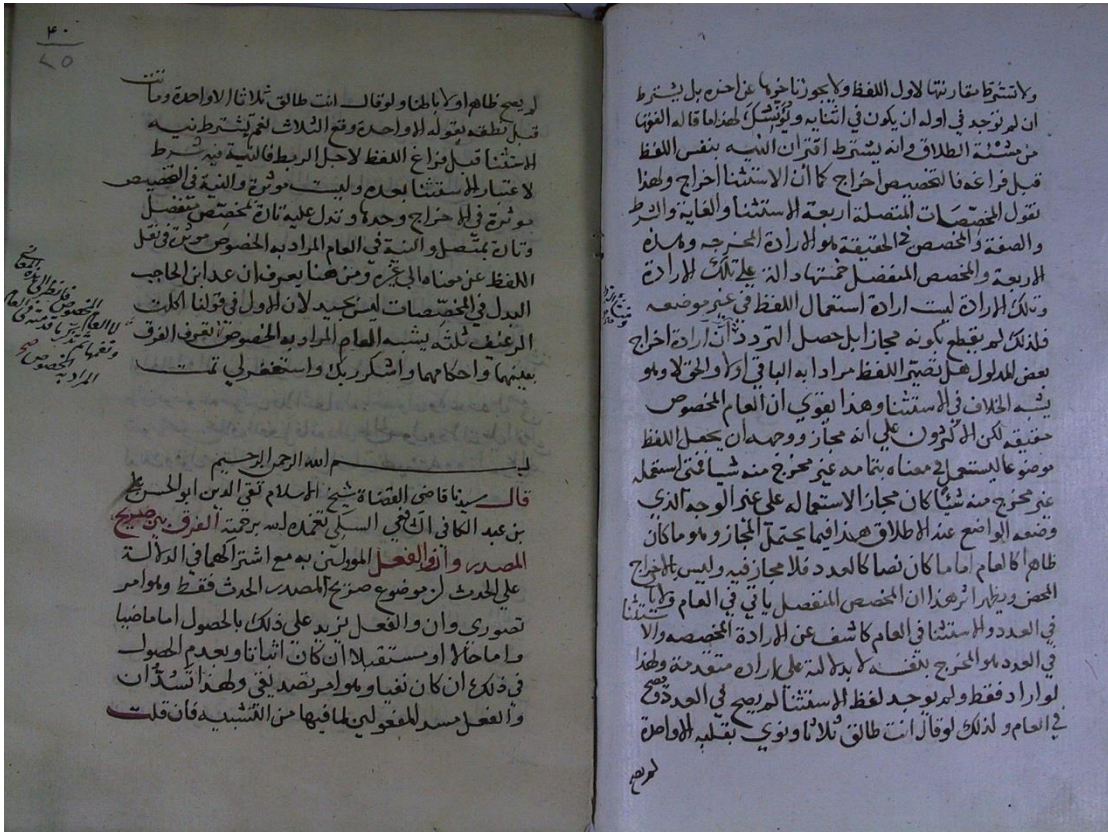 ولا تشترط مقارنتها لاول اللفظ ولا يجوز تاخيرها عن اخره بل يشترط
ان لم توجد في اوله ان يكون في اثنايه ويؤنس لهذا ما قاله الفقها
من مشئة الطلاق وانه يشترط اقتران النيه بنفس اللفظ
قبل فراغه فالتخصيص اخراج كما ان الاستثنا اخراج ولهذا
نقول المخصّصات المتصلة اربعة الاستثنا والغاية والشرط
والصفة والمخصص في الحقيقة هو الارادة المخرجه وهذه
الاربعة والمخصص المنفصل خمستها دالة على تلك الارادة
وتلك الارادة ليست ارادة استعمال اللفظ في غير موضعه
فلذلك لم يقطع بكونه مجازا بل حصل التردد في أن ارادة اخراج
بعض المدلول هل تصيّر اللفظ مرادا به الباقي أولا والحق لا وهو
يشبه الخلاف في الاستثنا وهذا يقوي ان العام المخصوص
حقيقه لكن الاكثرون على انه مجاز ووجهه ان يجعل اللفظ
موضوعا ليستعمل في معناه بتمامه غير مخرج منه شيا فمتى استعمله
غير مخرج منه شيئا كان مجازا لاستعماله على غير الوجه الذي
وضعه الواضع عند الاطلاق هذا فيما يحتمل المجاز وهو ما كان
ظاهرا كالعام اما ما كان نصا كالعدد فلا مجاز فيه وليس الا الاخراج
المحض ويظهر اثر هذا ان المخصص المنفصل ياتي في العام ولا ياتي
في العدد والاستثنا في العام كاشف عن الارادة المخصصه والاستثنا
في العدد هو المخرج بنفسه لا بدلالة على ارادة متقدمة ولهذا
لو اراد فقط ولم يوجد لفظ الاستثنا لم يصح في العدد وصح
في العام ولذلك لو قال انت طالق ثلاثا ونوى بقلبه الا واحدة
لم يصح
٤٠
٤٥
لم يصح ظاهرا ولا باطنا ولو قال انت طالق ثلاثا الا واحدة وماتت
قبل نطقه بقوله الا واحدة وقع الثلاث نعم يشترط نيه
الاستثنا قبل فراغ اللفظ لاجل الربط فالنية فيه شرط
لاعتبار الاستثنا بعده وليست موثرة والنية في التخصيص
موثرة في الاخراج وحدها وتدل عليه تارة بمخصّص منفصل
وتارة بمتصل والنية في العام المراد به الخصوص موثرة في نقل
اللفظ عن معناه الى غيره ومن هنا يعرف ان عد ابن الحاجب
البدل في المخصّصات ليس بجيد لان الاول في قولنا اكلت
الرغيف ثلثه يشبه العام المراد به الخصوص لا العام المخصوص
فتفهم هذه المعاني
الفرق بعينها واحكامها واشكر ربك واستغفر لي تمت
بسم الله الرحمن الرحيم
قال سيدنا قاضي القضاة شيخ الاسلام تقي الدين ابو الحسن علي
بن عبد الكافي الشافعي السبكي تغمده الله برحمته الفرق بين صريح
المصدر وأن والفعل المؤولين به مع اشتراكهما في الدلالة
على الحدث ان موضوع صريح المصدر الحدث فقط وهو امر
تصوري وان والفعل يزيد على ذلك بالحصول اما ماضيا
واما حالا او مستقبلا ان كان اثباتا وبعدم الحصول
في ذلك ان كان نفيا وهو امر تصديقي ولهذا تسُدُّ ان
والفعل مسد المفعولين لما فيها من النسبه فان قلت